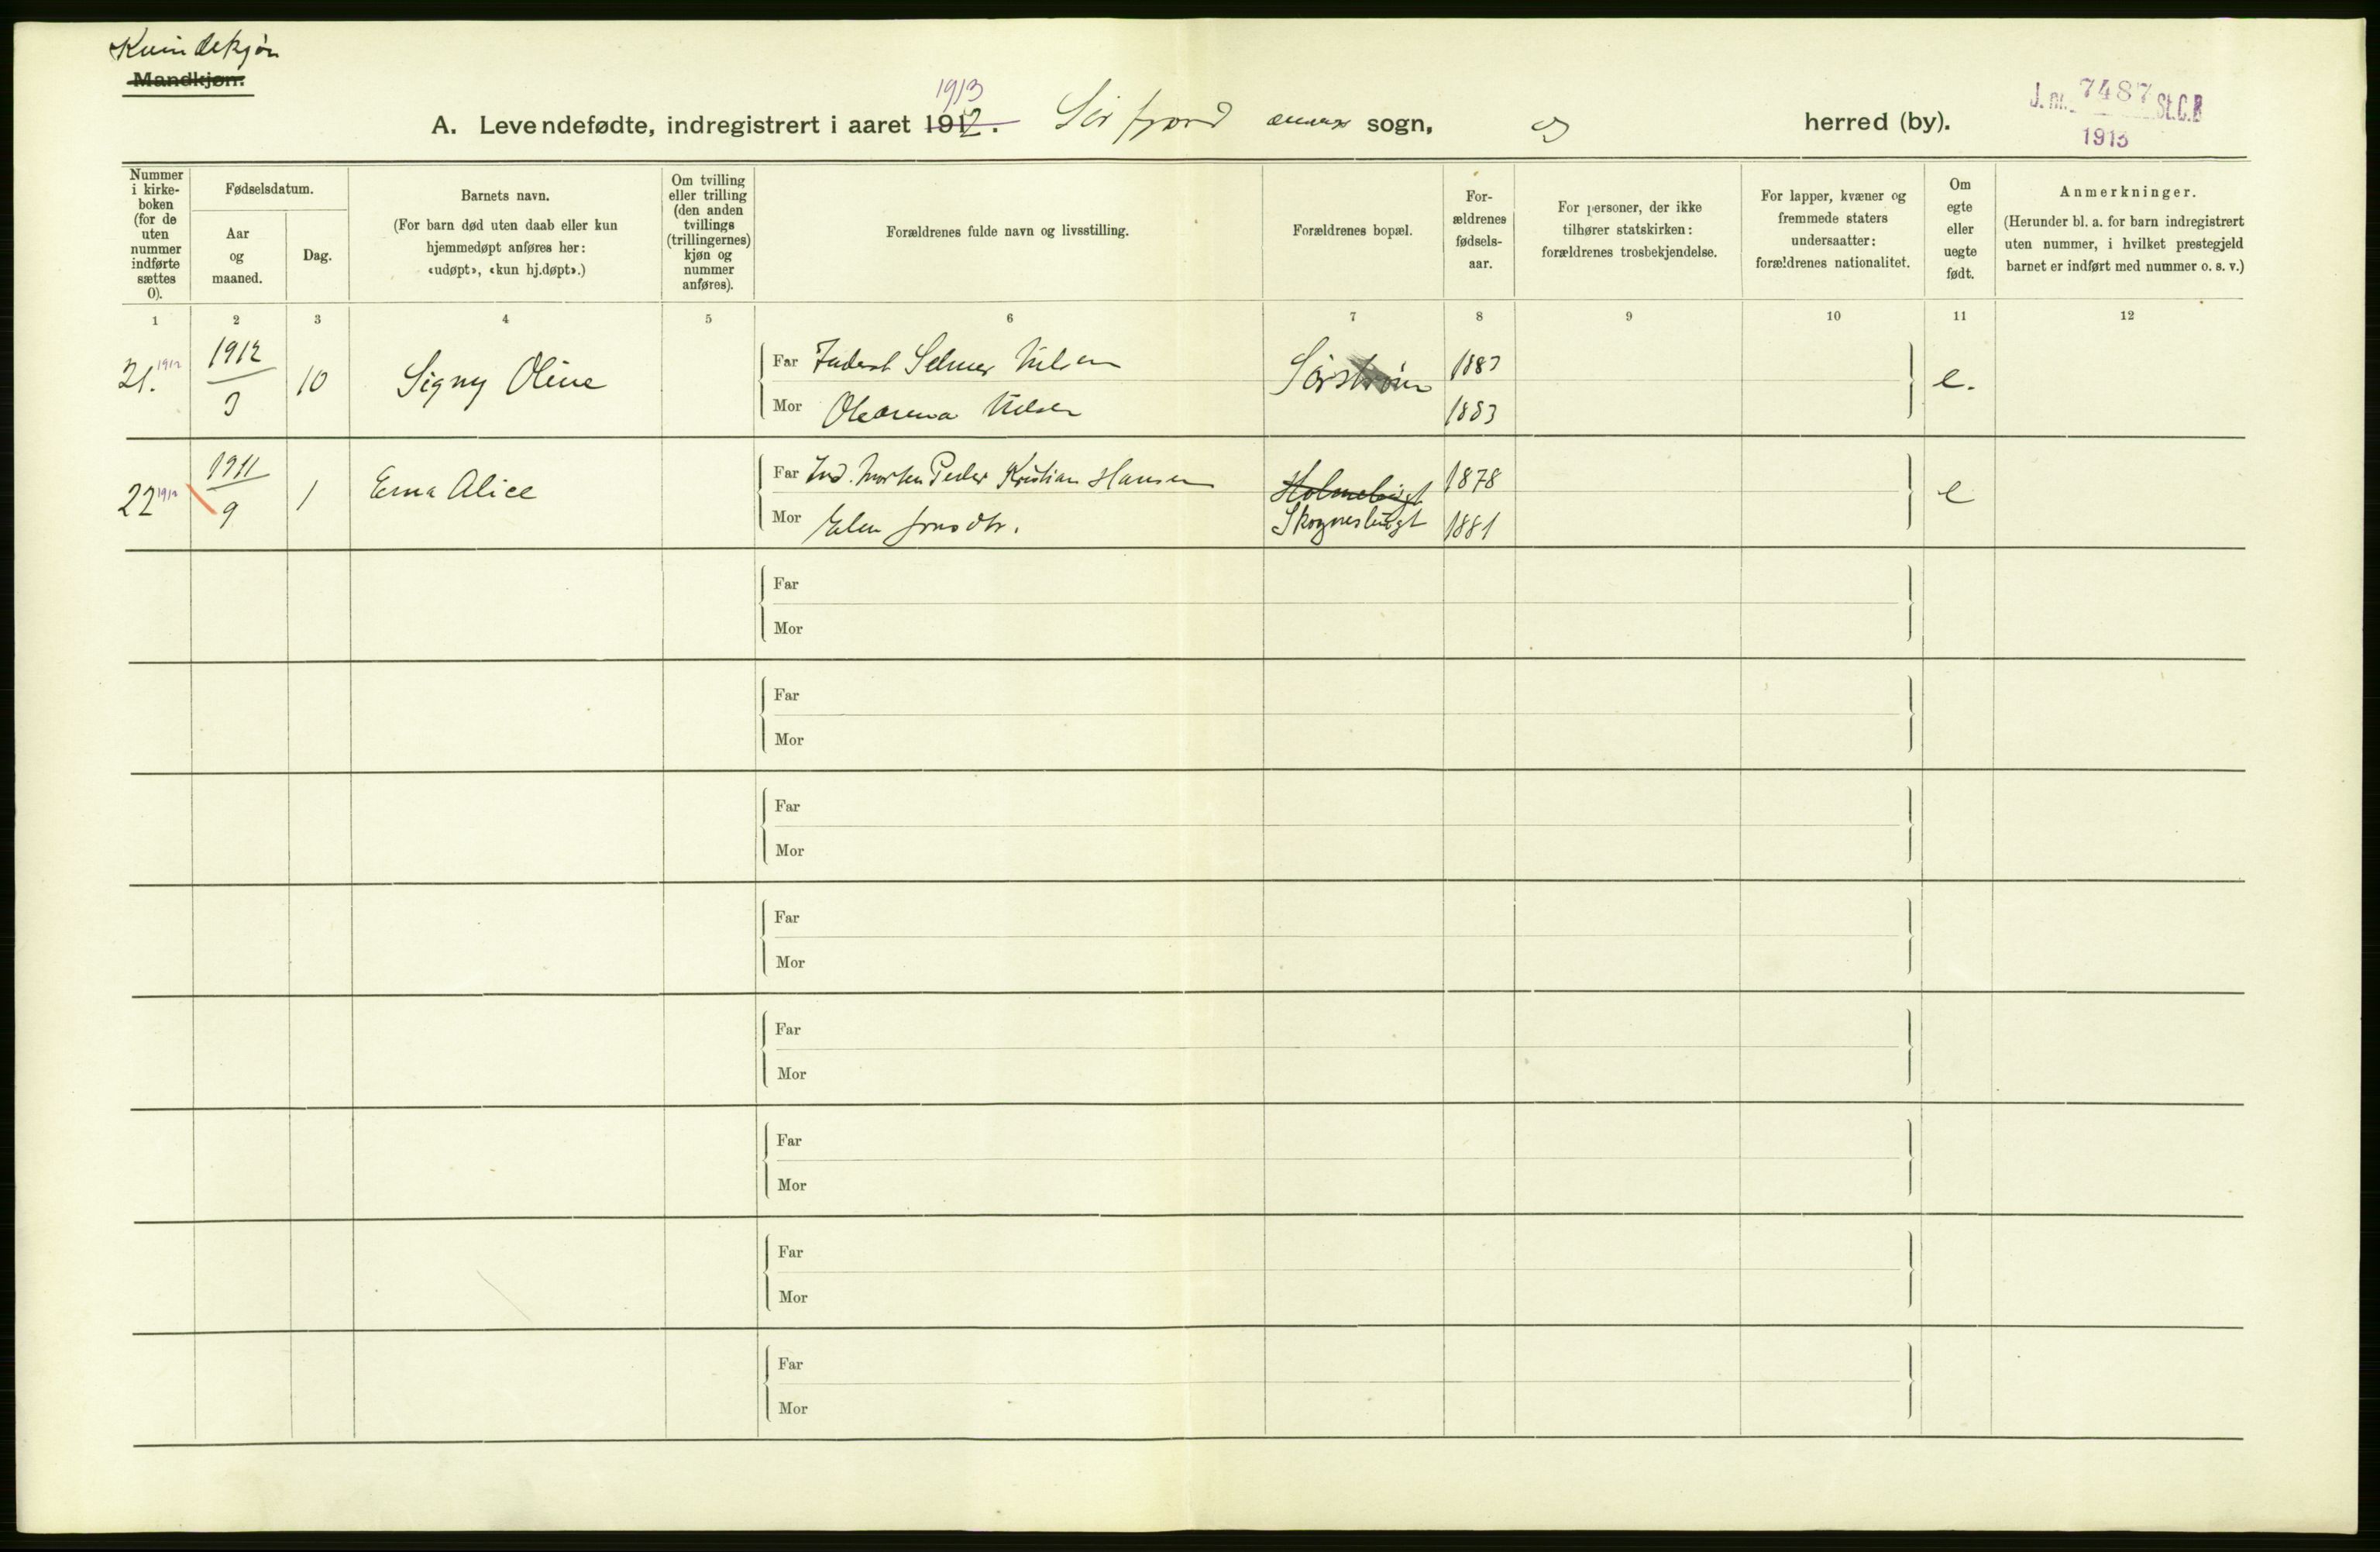 Kvindekjøn
Mandkjøn.
1913
A. Levendefødte, indregistrert i aaret 1912. Sörfjord annex sogn, herred (by).
J. nr. 7487 St.C.B
1913
Nummer i kirkeboken (for de uten nummer indførte sættes 0).
Fødselsdatum.
Aar og maaned.
Dag.
Barnets navn.
(For barn død uten daab eller kun hjemmedøpt anføres her: «udøpt», «kun hj.døpt».)
Om tvilling eller trilling (den anden tvillings (trillingernes) kjøn og nummer anføres).
Forældrenes fulde navn og livsstilling.
Forældrenes bopæl.
Forældrenes fødselsaar.
For personer, der ikke tilhører statskirken: forældrenes trosbekjendelse.
For lapper, kvæner og fremmede staters undersaatter: forældrenes nationalitet.
Om egte eller uegte født.
Anmerkninger.
(Herunder bl. a. for barn indregistrert uten nummer, i hvilket prestegjeld barnet er indført med nummer o. s. v.)
1 2 3 4 5 6 7 8 9 10 11 12
21. 1912 1912/3 10 Signy Oline
Far Inderst Selmer Nilsen 1883
Mor Nilsen 1883
Sörström
e.
22 1912 1911/9 1 Erna Alice
Far Ind. Morten Peder Kristian Hansen 1878
Mor Elen Jonsdtr. 1881
Holmebugt
Skognesbugt
e
Far
Mor
Far
Mor
Far
Mor
Far
Mor
Far
Mor
Far
Mor
Far
Mor
Far
Mor